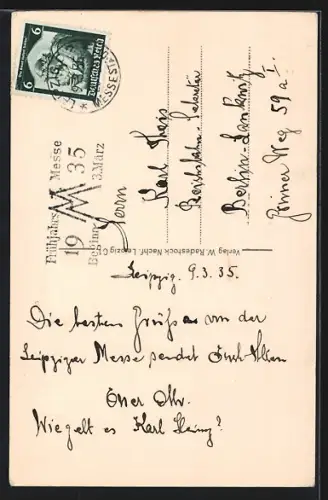 6 6
Deutsches Reich
MESSESTADT
Frühjahrs Messe
1935
Beginn 3. März
Herrn
Karl
Reichsbahn-Sekretär
Berlin-Lankwitz
Weg 59a I.
Verlag W. Radestock Nachf. Leipzig C
Leipzig, 9.3.35.
Die besten Grüße von der
Leipziger Messe sendet Euch Allen
Euer
Wie geht es Karl Heinz?